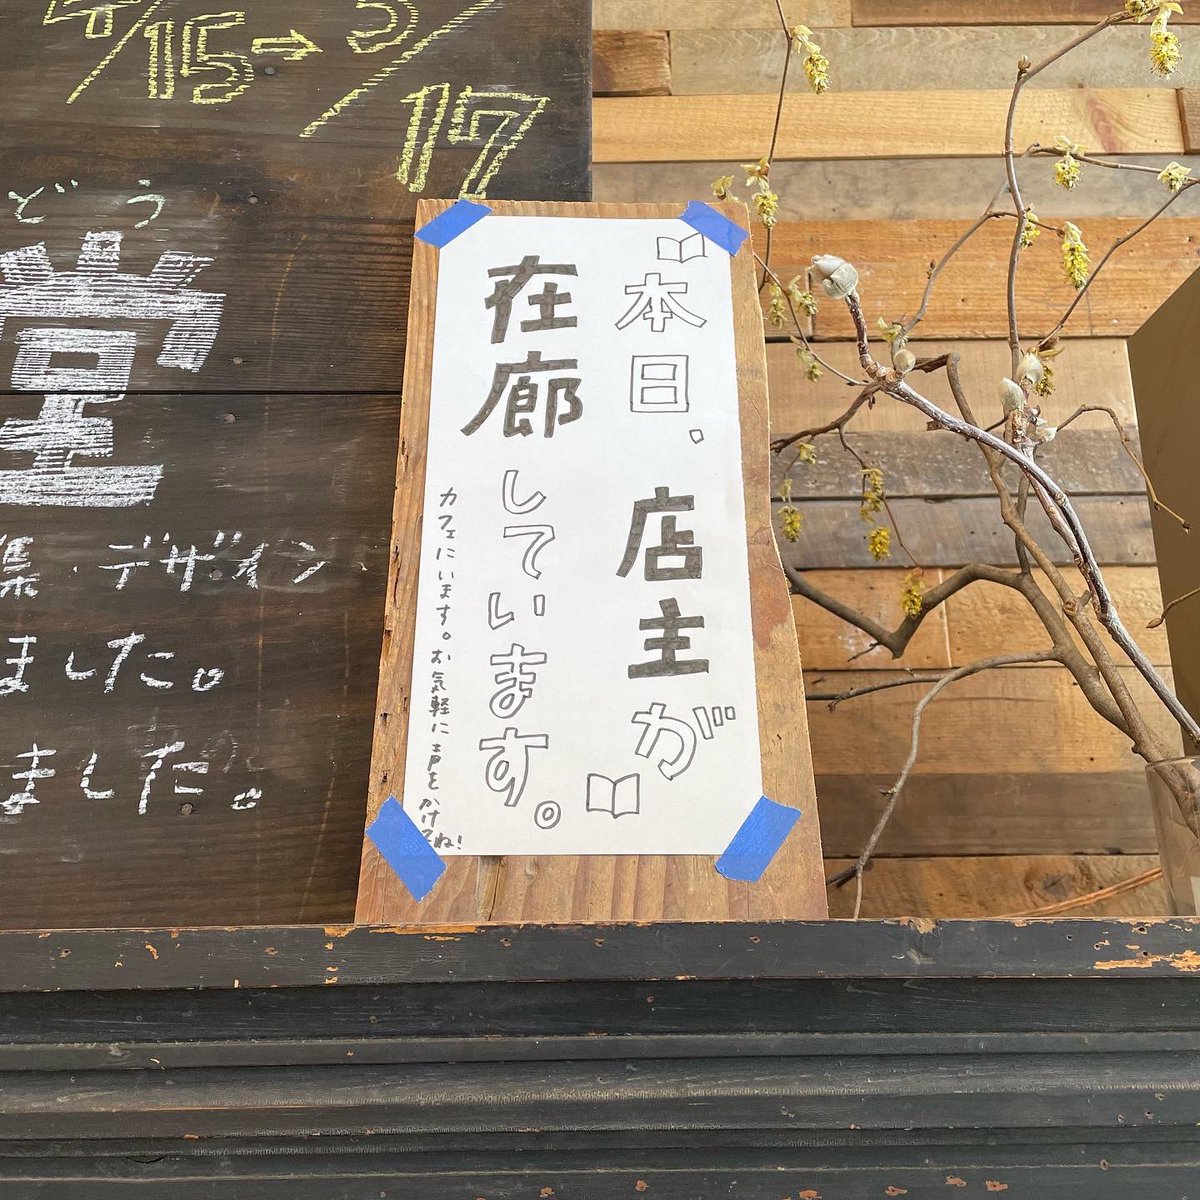 4/15→5/17
どう
堂
集・デザイン
ました。
ました。
本日、店主が
在廊しています。
カフェにいます。お気軽に声をかけてね!